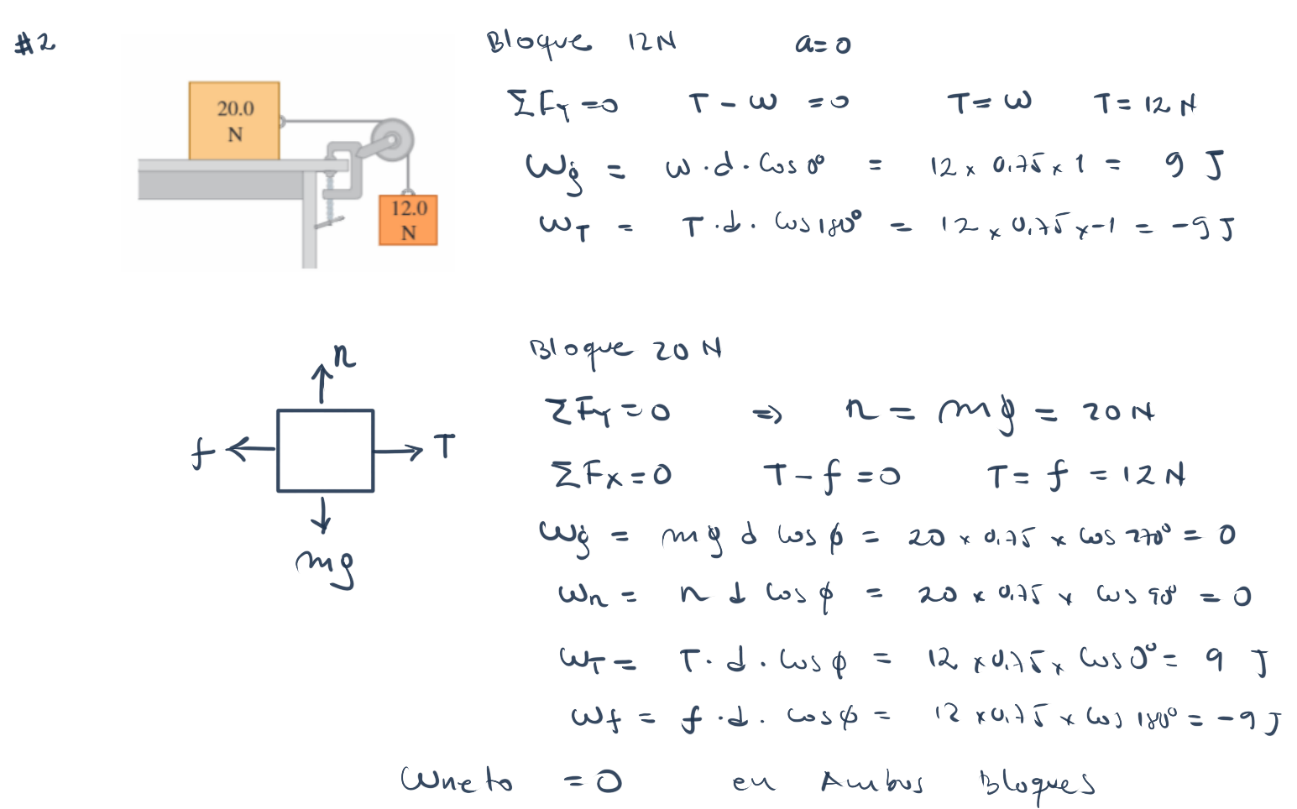 #2
20.0
N
12.0
N
Bloque 12N a=0
ΣFy=0 T-w =0 T=w T=12N
Wg = w.d.Cos0° = 12 x 0,75 x 1 = 9 J
WT = T.d.Cos180° = 12 x 0,75 x-1 = -9J
n
f
T
mg
Bloque 20N
ΣFy=0 ⇒ n = mg = 20N
ΣFx=0 T-f=0 T=f=12N
Wg = mg d cosϕ = 20 x 0,75 x cos270° = 0
Wn = n d cosϕ = 20 x 0,75 x cos90° = 0
WT = T.d.Cosϕ = 12 x 0,75 x Cos0° = 9 J
Wf = f.d.cosϕ = 12 x 0,75 x cos180° = -9J
Wneto =0 en Ambos Bloques